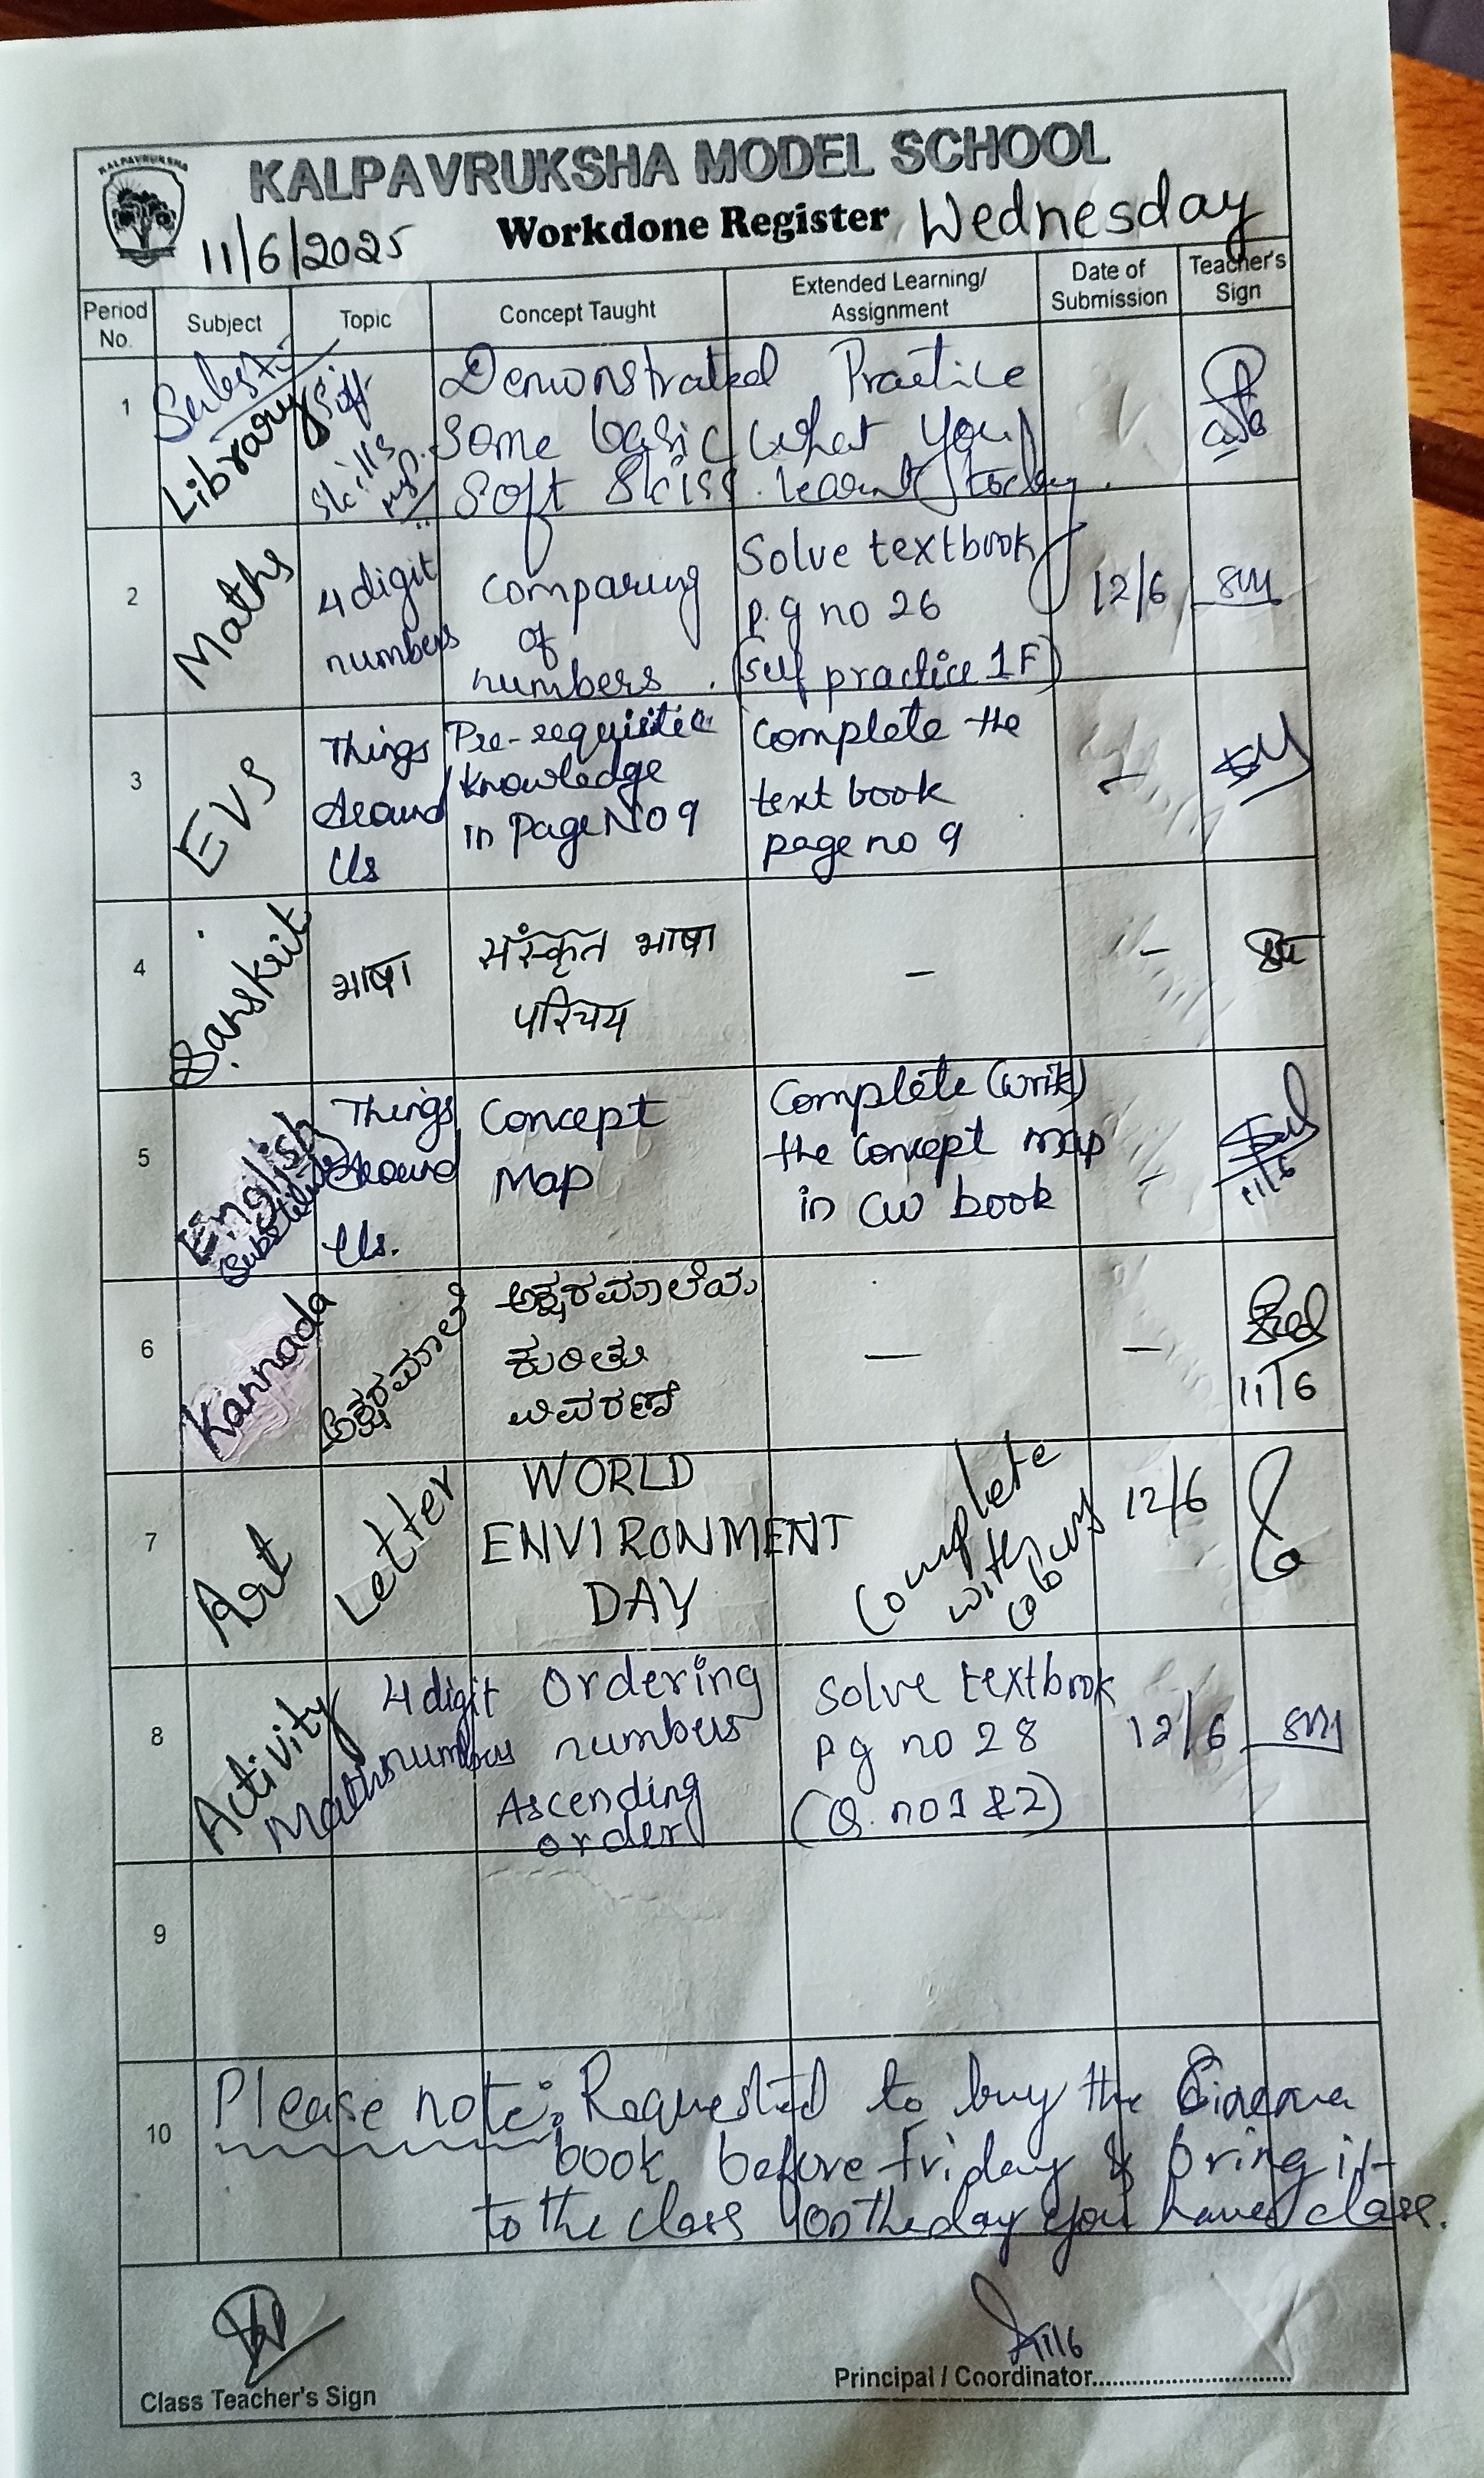 KALPAVRUKSHA
KALPAVRUKSHA MODEL SCHOOL
11/6/2025 Workdone Register Wednesday
Period No. Subject Topic Concept Taught Extended Learning/ Assignment Date of Submission Teacher's Sign
1 Library Soft skills
Demonstrated some basic soft
Practice what you learnt today.
2 Maths 4 digit numbers
comparing of numbers.
Solve textbook
p.g no 26
(self practice 1F)
12/6
3 EVS Things Around Us
Pre-requisitic
knowledge
in Page No 9
Complete the
text book
page no 9
-
4 Sanskrit भाषा
संस्कृत भाषा
परिचय
-
-
5 English Things Around Us.
Concept
Map
Complete (write)
the concept map
in CW book
-
11/6
6 Kannada ಅಕ್ಷರಮಾಲೆ
ಅಕ್ಷರಮಾಲೆಯ
ಕುರಿತು
ವಿವರಣೆ
-
-
11/6
7 Art Letter
WORLD
ENVIRONMENT
DAY
Complete
with
12/6
8 Activity Maths 4 digit numbers
Ordering
numbers
Ascending
order
Solve textbook
pg no 28
(Q. no 1 & 2)
12/6
9
10 Please note: Requested to buy the
book before Friday & bring it
to the class on the day you have class.
11/6
Class Teacher's Sign
Principal / Coordinator